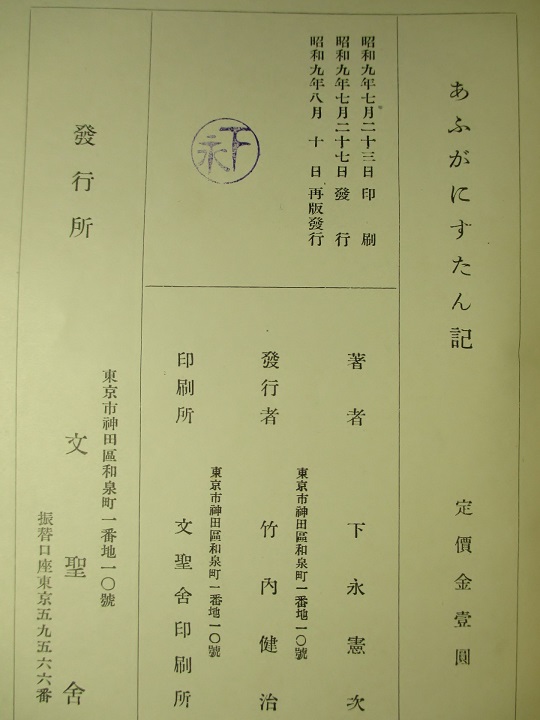 あふがにすたん記
定價金壹圓
昭和九年七月二十三日印刷
昭和九年七月二十七日發行
昭和九年八月十日再版發行
下永
著者 下永憲次
東京市神田區和泉町一番地一〇號
發行者 竹內健治
東京市神田區和泉町一番地一〇號
印刷所 文聖舍印刷所
發行所
東京市神田區和泉町一番地一〇號
文聖舍
振替口座東京五九五六六番